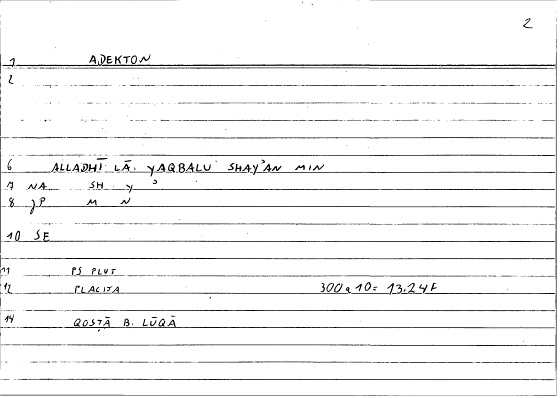 2
1 ADEKTON
2
6 ALLADHĪ LĀ YAQBALU SHAYʾAN MIN
7 NA SH Y ʾ
8 JP M N
10 SE
11 PS PLUT
12 PLACITA 300a10 = 13.24F
14 QOSṬĀ B. LŪQĀ